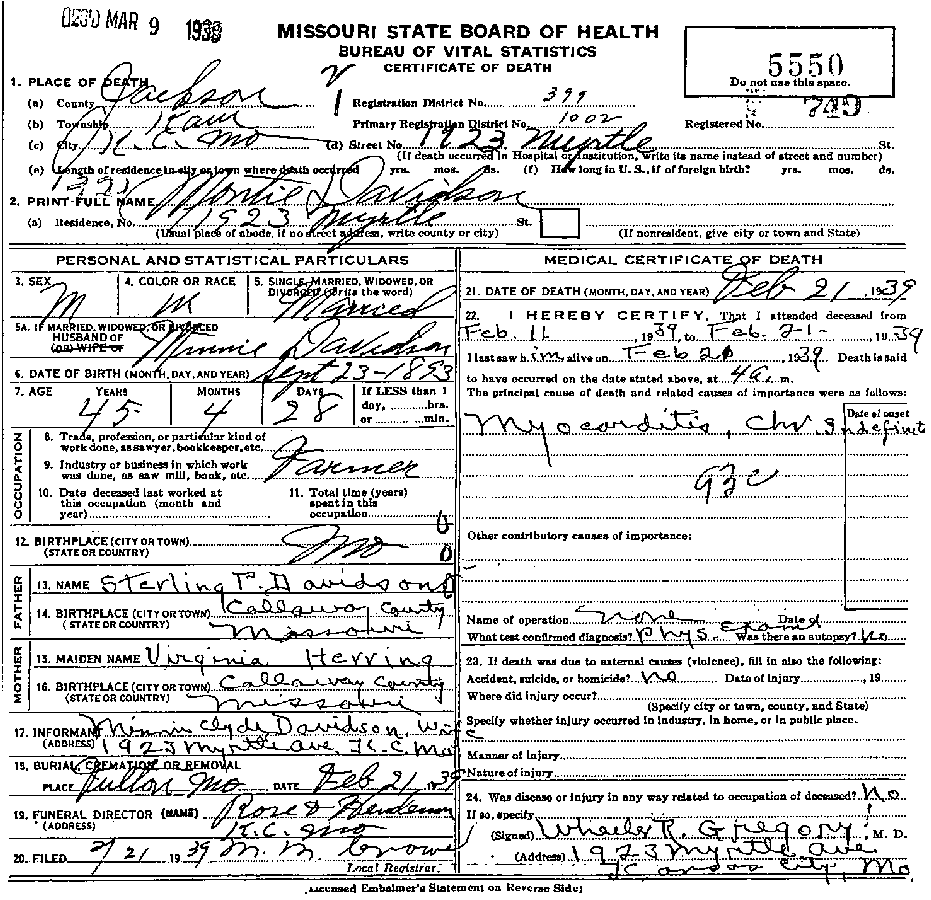 MAR 9 1939
MISSOURI STATE BOARD OF HEALTH
BUREAU OF VITAL STATISTICS
CERTIFICATE OF DEATH
5550
Do not use this space.
1. PLACE OF DEATH
(a) County Jackson
Registration District No. 399
749
(b) Township Kaw
Primary Registration District No. 1002
Registered No.
(c) City K. C. Mo
(d) Street No. 1923 Myrtle St.
(If death occurred in Hospital or Institution, write its name instead of street and number)
(e) Length of residence in city or town where death occurred yrs. mos. ds. (f) How long in U. S., if of foreign birth? yrs. mos. ds.
2. PRINT FULL NAME Montie Davidson
(a) Residence, No. 1923 Myrtle St.
(Usual place of abode, if no street address, write county or city) (If nonresident, give city or town and State)
PERSONAL AND STATISTICAL PARTICULARS
3. SEX M
4. COLOR OR RACE
5. SINGLE, MARRIED, WIDOWED, OR DIVORCED (write the word) Married
5A. IF MARRIED, WIDOWED, OR DIVORCED
HUSBAND OF
(OR) WIFE OF Minnie Davidson
6. DATE OF BIRTH (MONTH, DAY, AND YEAR) Sept 23-1893
7. AGE YEARS MONTHS DAYS If LESS than 1
45 4 28 day, hrs.
or min.
OCCUPATION
8. Trade, profession, or particular kind of
work done, as sawyer, bookkeeper, etc. Farmer
9. Industry or business in which work
was done, as saw mill, bank, etc.
10. Date deceased last worked at
this occupation (month and
year)
11. Total time (years)
spent in this
occupation
12. BIRTHPLACE (CITY OR TOWN)
(STATE OR COUNTRY) Mo
FATHER
13. NAME Sterling P. Davidson
14. BIRTHPLACE (CITY OR TOWN) Callaway County
(STATE OR COUNTRY) Missouri
MOTHER
15. MAIDEN NAME Virginia Herring
16. BIRTHPLACE (CITY OR TOWN) Callaway County
(STATE OR COUNTRY) Missouri
17. INFORMANT Minnie Clyde Davidson, Wife
(ADDRESS) 1923 Myrtle Ave, K. C. Mo
18. BURIAL, CREMATION OR REMOVAL
PLACE Fulton Mo DATE Feb 21 1939
19. FUNERAL DIRECTOR (NAME) Rose &
(ADDRESS) K. C. Mo
20. FILED 2/21 1939 M. M. Crowe
Local Registrar.
MEDICAL CERTIFICATE OF DEATH
21. DATE OF DEATH (MONTH, DAY, AND YEAR) Feb 21, 1939
22. I HEREBY CERTIFY, That I attended deceased from
Feb. 11, 1939, to Feb. 21-, 1939
I last saw him alive on Feb 20, 1939 Death is said
to have occurred on the date stated above, at 4 a. m.
The principal cause of death and related causes of importance were as follows:
Date of onset
Myocarditis, Chr. Indefinite
93c
Other contributory causes of importance:
Name of operation None Date
What test confirmed diagnosis? Phys. Exam Was there an autopsy? No
23. If death was due to external causes (violence), fill in also the following:
Accident, suicide, or homicide? No Date of injury , 19
Where did injury occur?
(Specify city or town, county, and State)
Specify whether injury occurred in industry, in home, or in public place.
Manner of Injury
Nature of injury
24. Was disease or injury in any way related to occupation of deceased? No
If so, specify
(Signed) Wheeler R. Gregory, M. D.
(Address) 1923 Myrtle Ave
Kansas City, Mo
(Licensed Embalmer's Statement on Reverse Side)